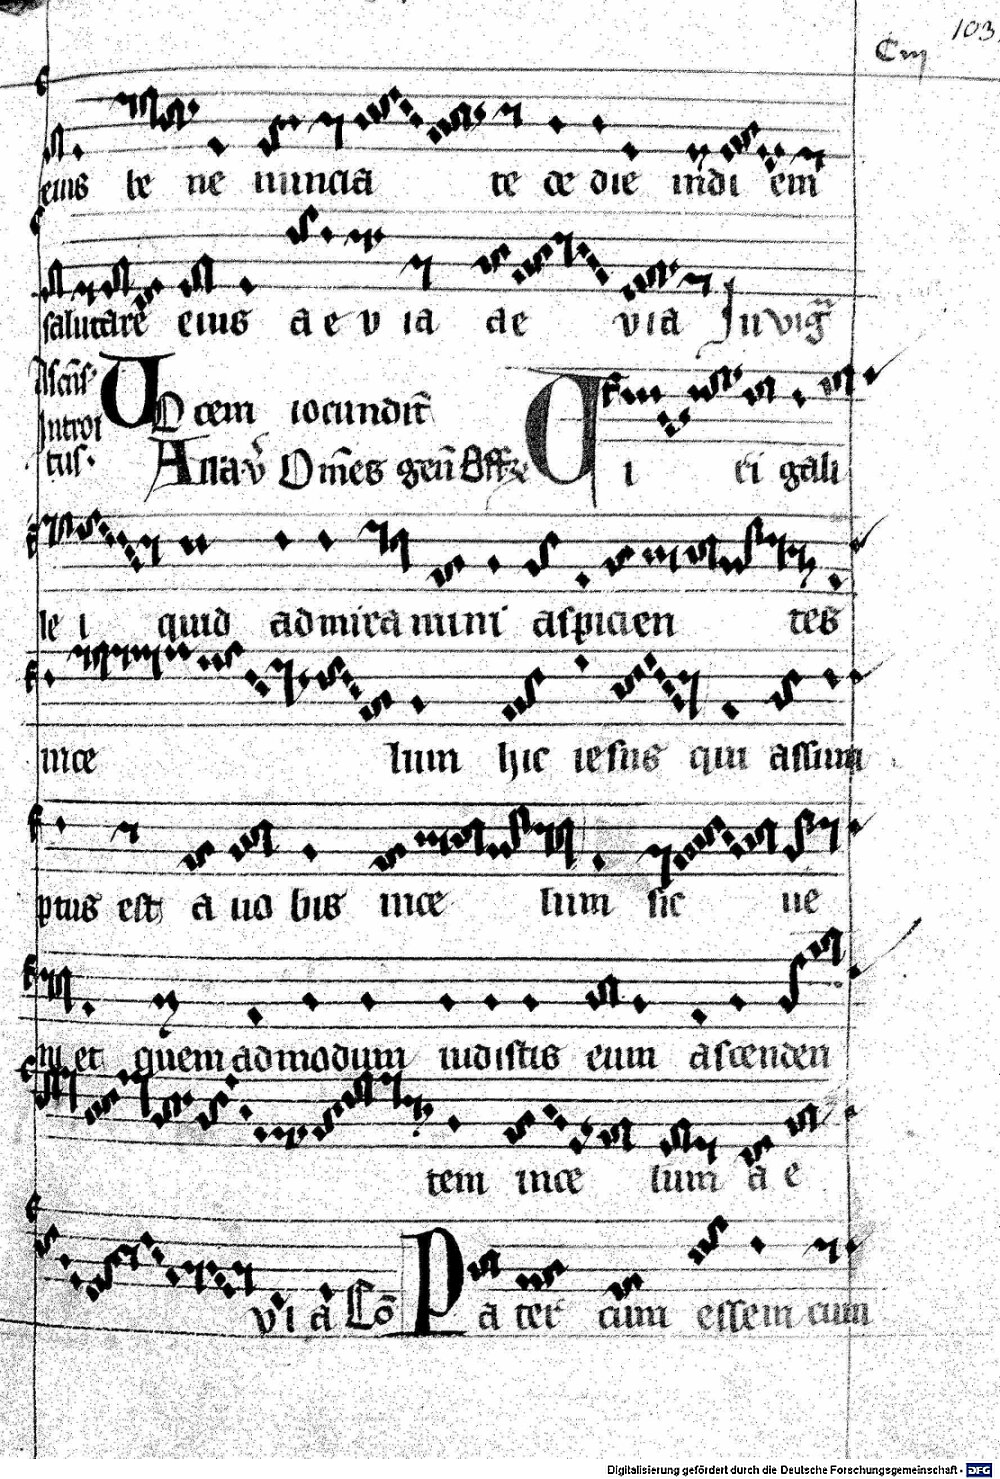 103
Ciij
eius be ne nuncia te de die indi em
salutare eius a e v ia ae via In vig
Ascens
Introi
tus
Vo cem iocundit
Ana v Omes gen Offe
V i ri gali
le i quid admira mini aspicien tes
ince lum hic iesus qui assum
ptus est a uo bis ince lum sic ue
ni et quem admodum uidistis eum ascenden
tem ince lum a e
via Co Pa ter cum essem cum
Digitalisierung gefördert durch die Deutsche Forschungsgemeinschaft - DFG